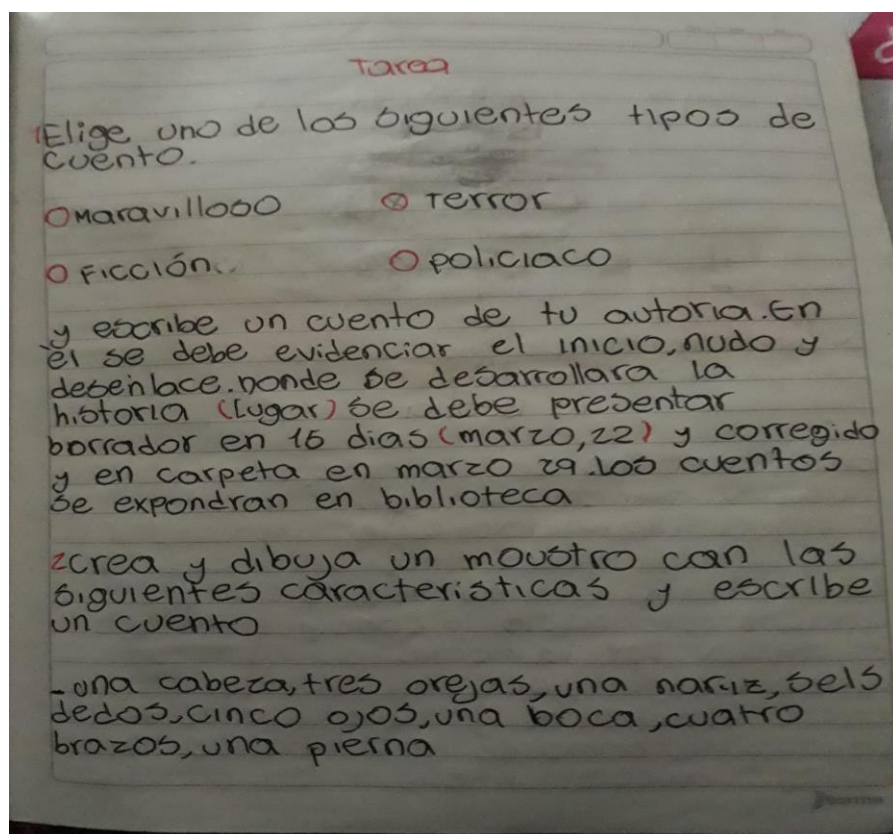 Tarea
1Elige uno de los siguientes tipos de
cuento.
O Maravilloso O Terror
O Ficción. O policiaco
y escribe un cuento de tu autoria. En
él se debe evidenciar el inicio, nudo y
desenlace. Donde se desarrollara la
historia (lugar) se debe presentar
borrador en 15 dias (marzo, 22) y corregido
y en carpeta en marzo 29. Los cuentos
se expondran en biblioteca
2crea y dibuja un moustro can las
siguientes caracteristicas y escribe
un cuento
-una cabeza, tres orejas, una nariz, seis
dedos, cinco ojos, una boca, cuatro
brazos, una pierna